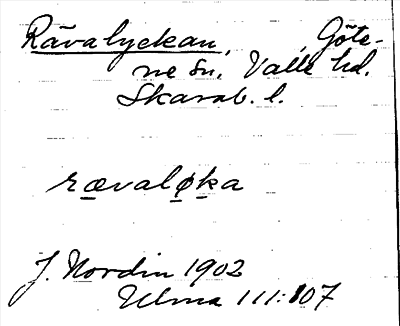 Rävalyckan, , Göte-
ne sn. Valle hd.
Skarab. l.
rævaløka
J. Nordin 1902
Ulma 111:107